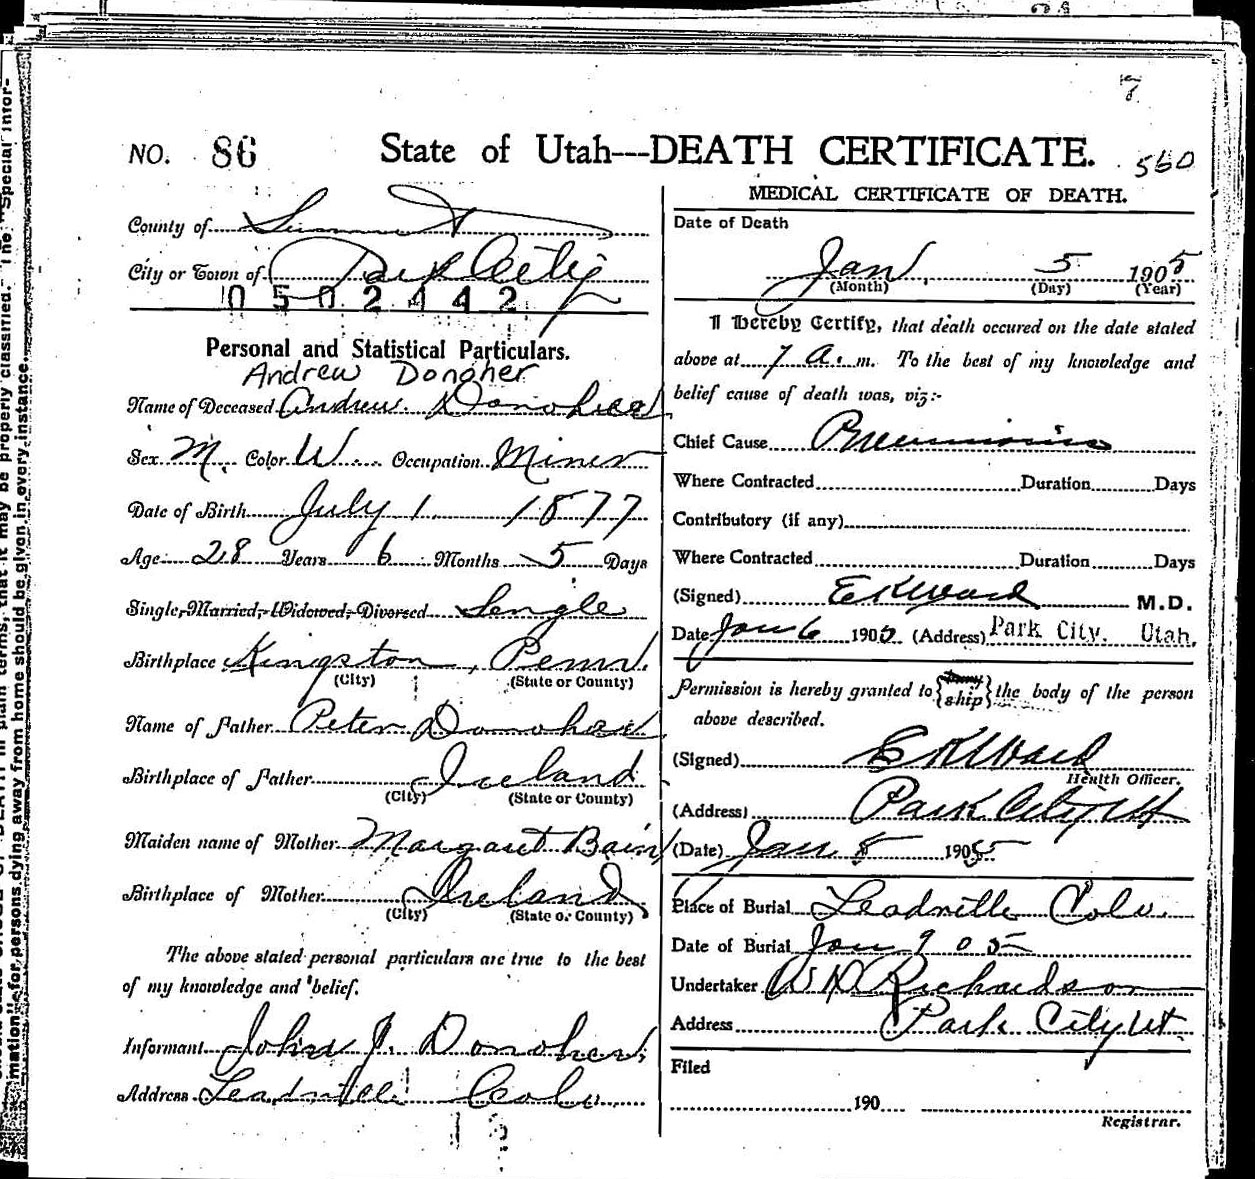 7
NO. 86 State of Utah---DEATH CERTIFICATE. 560
County of Summit
City or Town of Park City
0502442
Personal and Statistical Particulars.
Andrew Donoher
Name of Deceased Andrew Donoher
Sex M. Color W Occupation Miner
Date of Birth July 1 1877
Age 28 Years 6 Months 5 Days
Single, Married, Widowed, Divorced Single
Birthplace Kingston, Penn.
(City) (State or County)
Name of Father Peter Donoher
Birthplace of Father Ireland
(City) (State or County)
Maiden name of Mother Margaret Bain
Birthplace of Mother Ireland
(City) (State or County)
The above stated personal particulars are true to the best
of my knowledge and belief.
Informant John J. Donoher
Address Leadville Colo.
MEDICAL CERTIFICATE OF DEATH.
Date of Death
Jan 5 1905
(Month) (Day) (Year)
I Hereby Certify, that death occured on the date stated
above at 7 A. m. To the best of my knowledge and
belief cause of death was, viz:-
Chief Cause Pneumonia
Where Contracted Duration Days
Contributory (if any)
Where Contracted Duration Days
(Signed) E K Ward M.D.
Date Jan 6 1905 (Address) Park City. Utah.
Permission is hereby granted to ship the body of the person
above described.
(Signed) E K Ward
Health Officer.
(Address) Park City Ut
(Date) Jan 1905
Place of Burial Leadville Colo.
Date of Burial Jan 9 05
Undertaker W D Richardson
Address Park City Ut
Filed
190
Registrar.
mation" for persons dying away from home should be given in every instance.
plain terms, that it may be properly classified. The "Special Infor-